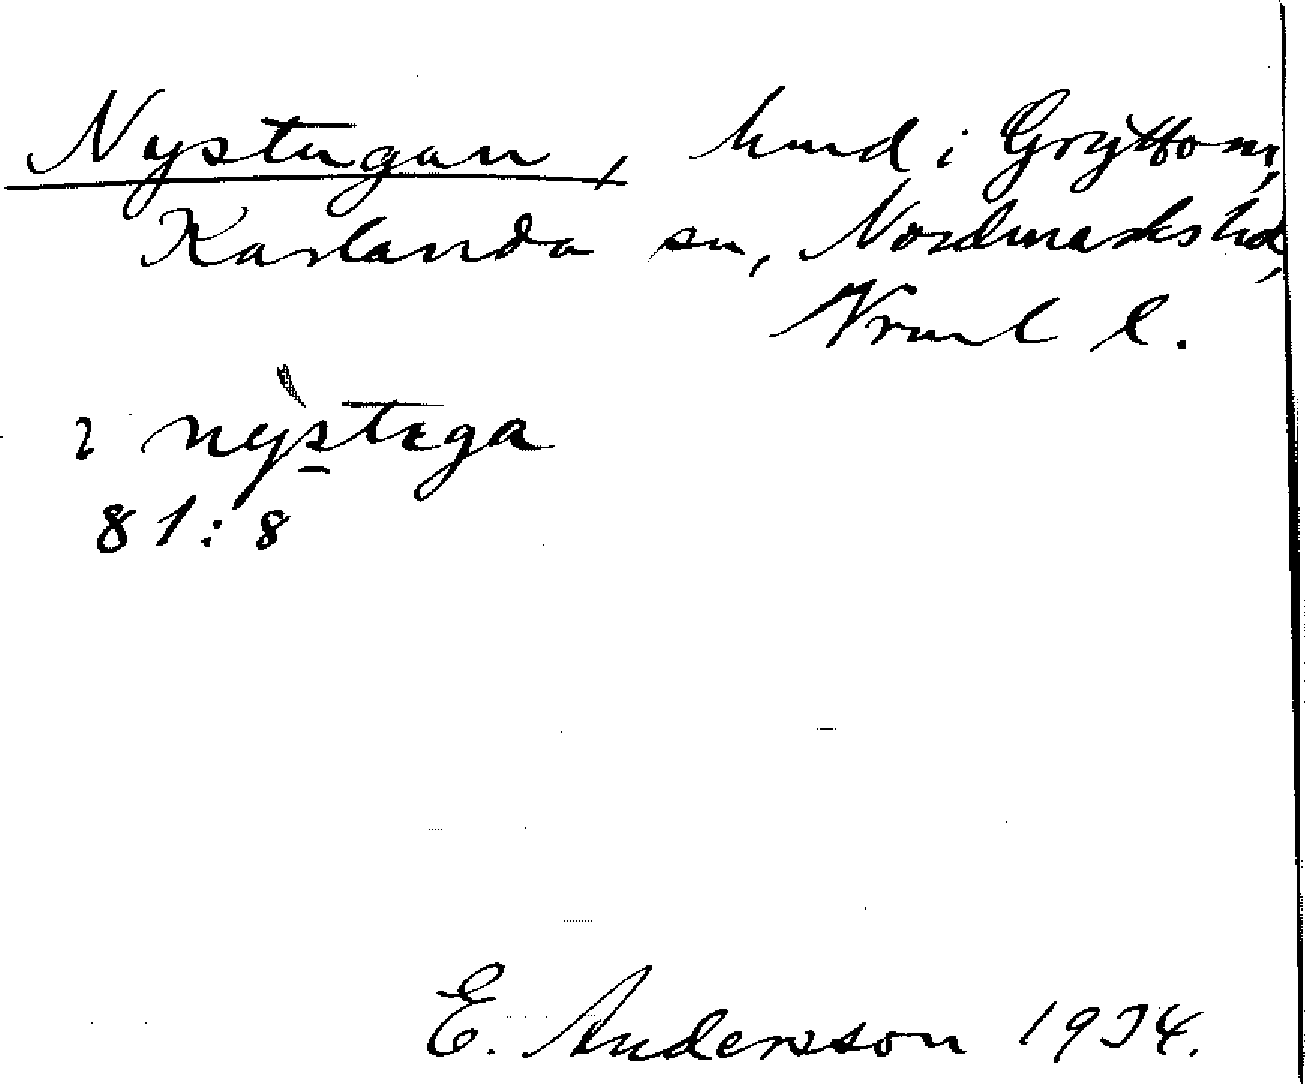 Nystugan, hmd i Gryttom,
Karlanda sn, Nordmarks hd,
Vrml l.
nýstega
81:8
E. Andersson 1934.